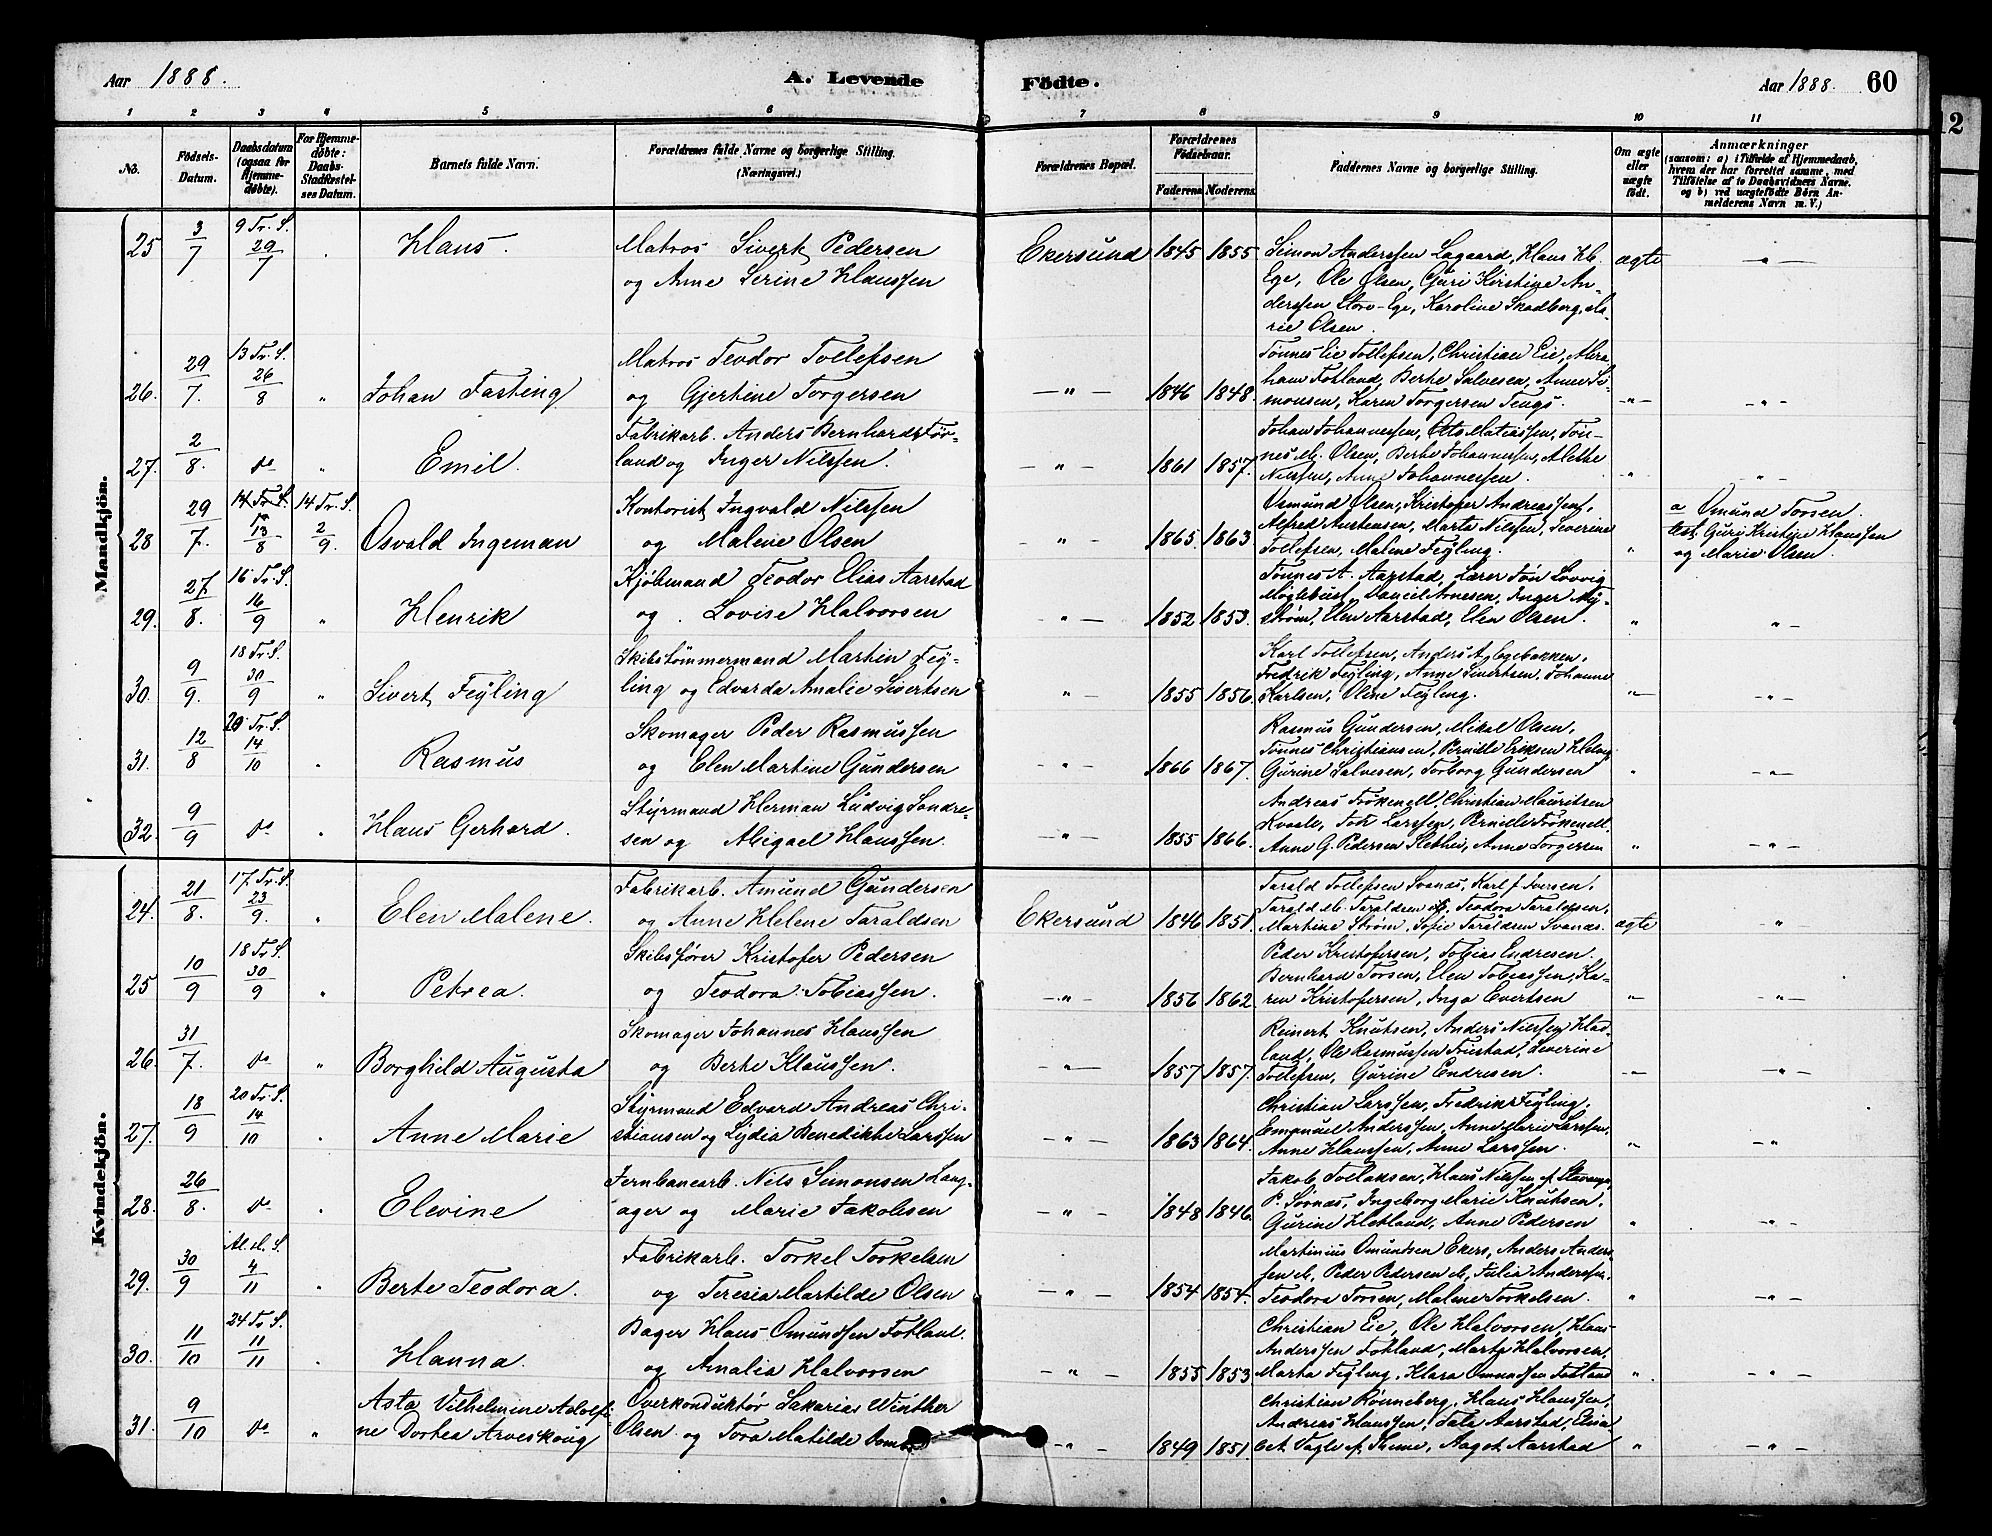 Aar 1888.
A. Levende
Födte.
Aar 1888.
60
12
1 2 3 4 5 6 7 8 9 10 11
No.
Födsels-
Datum.
Daabsdatum
(ogsaa for
Hjemme-
döbte).
For Hjemme-
döbte:
Daabs-
Stadfæstel-
ses Datum.
Barnets fulde Navn.
Forældrenes fulde Navne og borgerlige Stilling.
(Næringsvei.)
Forældrenes Bopæl.
Forældrenes
Födselsaar.
Faderens
Moderens
Faddernes Navne og borgerlige Stilling.
Om ægte
eller
uægte
födt.
Anmærkninger
(saasom: a) i Tilfælde af Hjemmedaab,
hvem der har forrettet samme, med
Tilföielse af to Daabsvidners Navne.
og b) ved uægtefödte Börn An-
melderens Navn m. V.)
Mandkjön.
25 3/7 9 Tr. S. 29/7 Hans.
Matros Sivert Pedersen
og Anne Serine Hanssen
Ekersund 1845 1855
Simon Anderssen Lagaard, Hans
Ege, Ole Olsen, Guri Kirstine An-
derssen Store-Ege, Karoline Skadberg, Ma-
rie Olsen.
ægte
26. 29/7. 13 Tr. S. 26/8 " Johan Fasting
Matros Teodor Tollefsen
og Gjertine Torgersen
— " — 1846 1848.
Tønnes Eie Tollefsen, Christian Eie, Abra-
ham Fotland, Berte Salvesen, Anne Si-
monsen, Karen Torgersen Tengs.
27. 2/8. do " Emil.
Fabrikarb. Anders Bernhard Tør-
land og Inger Nilssen.
— " — 1861 1857.
Johan Johannessen, Otto Matiassen, Tøn-
nes M. Olsen, Berte Johannessen, Alethe
Nilssen, Anne Johannessen.
28 29/7. 14 Tr. S. 13/8 14 Tr. S. 2/9. Osvald Ingeman
Kontorist Ingvald Nilssen
og Malene Olsen
— " — 1865. 1863
Osmund Olsen, Kristofer Andreassen,
Alfred Austensen, Marta Nilssen, Severine
Tollefsen, Malene Feyling.
a Omund Torsen.
Guri Kristine Hanssen
og Marie Olsen.
29. 27/8. 16 Tr. S. 16/9 " Henrik
Kjøbmand Teodor Elias Aarstad
og Lovise Halvorsen
" — 1852 1853.
Tønnes A. Aarstad, Lærer Jon Lovvig
Møglebust, Daniel Arnesen, Inger Ny-
strøm, Elen Aarstad, Elen Olsen.
30. 9/9. 18 Tr. S. 30/9 " Sivert Feyling
Skibstømmermand Martin Fey-
ling og Edvarda Amalie Sivertsen
" — 1855 1856.
Karl Tollefsen, Anders Nygebakken,
Fredrik Feyling, Anne Sivertsen, Johanne
Karlsen, Oline Feyling.
31. 12/8 20 Tr. S. 14/10 Rasmus
Skomager Peder Rasmussen
og Elen Martine Gundersen
- " — 1866 1867.
Rasmus Gundersen, Mikal Olsen,
Tønnes Christiansen, Pernille Eriksen
Gurine Salvesen, Torborg Gundersen
32. 9/9 do Hans Gerhard.
Styrmand Herman Ludvig Sondre-
sen og Abigael Hanssen.
" — 1855 1866.
Andreas Frøkenell, Christian Mauritsen
Kvaale, Larssen, Pernille Frøkenell
Anne G. Pedersen Slethei, Anne Torgersen
Kvindekjön.
24. 21/8. 17 Tr. S. 23/9. Elen Malene.
Fabrikarb. Amund Gundersen
og Anne Helene Taraldsen
Ekersund 1846 1851.
Tarald Tollefsen Svanas, Karl J. Iversen,
Tarald M. Taraldsen, Teodora Taraldsen,
Martine Strøm, Sofie Taraldsen Svanas.
ægte
25 10/9 18 Tr. S. 30/9 Petrea.
Skibsfører Kristofer Pedersen
og Teodora Tobiassen.
— " — 1856 1862.
Peder Kristofersen, Tobias Endresen.
Bernhard Torsen, Elen Tobiassen, Ka-
ren Kristofersen, Inga Evertsen
26. 31/7. do " Borghild Augusta
Skomager Johannes Hanssen
og Berte Klaussen.
" — 1857 1857.
Reinert Knutsen, Anders Nilssen Had-
land, Ole Rasmussen Frustad, Severine
Tollefsen, Gurine Endresen.
27. 18/9 20 Tr. S. 14/10 Anne Marie
Styrmand Edvard Andreas Chri-
stiansen og Lydia Benedikte Larssen
— " — 1863 1864.
Christian Larssen, Fredrik Feyling,
Emanuel Anderssen, Anne Marie Larssen,
Anne Hanssen, Anne Larssen.
28. 26/8. do Elevine
Jernbanearb. Nils Simonsen Lang-
ager og Marie Jakobsen
— " — 1848 1846.
Jakob Tollaksen, Hans Nilssen af Stavanger
P. Sørnas, Ingeborg Marie Knutsen,
Gurine Hetland, Anne Pedersen
29. 30/9 Al. H. S. 4/11 Berte Teodora.
Fabrikarb. Torkel Torkelsen
og Teresia Martilde Olsen
— " — 1854 1854.
Martinius Omundsen Ekers, Anders Anders-
sen M., Peder Pedersen M., Julia Anderssen,
Teodora Torsen, Malene Torkelsen.
30. 11/10 24 Tr. S. 11/11 Hanna.
Bager Hans Omundsen Fotland.
og Amalia Halvorsen
— " — 1855 1853
Christian Eie, Ole Halvorsen, Hans
Anderssen Fotland, Marta Halvorsen,
Marta Feyling, Klara Omundsen Fotland
31. 9/10 do " Asta Vilhelmine Adolfi-
ne Dortea Arveskoug
Overkonduktør Sakarias Winther
Olsen og Tora Matilde
— " — 1849 1851.
Christian Rønneberg, Hans Hanssen,
Andreas Hanssen, Tala Aarstad, Elisa-
bet Vagle af Thime, Aagot Aarstad